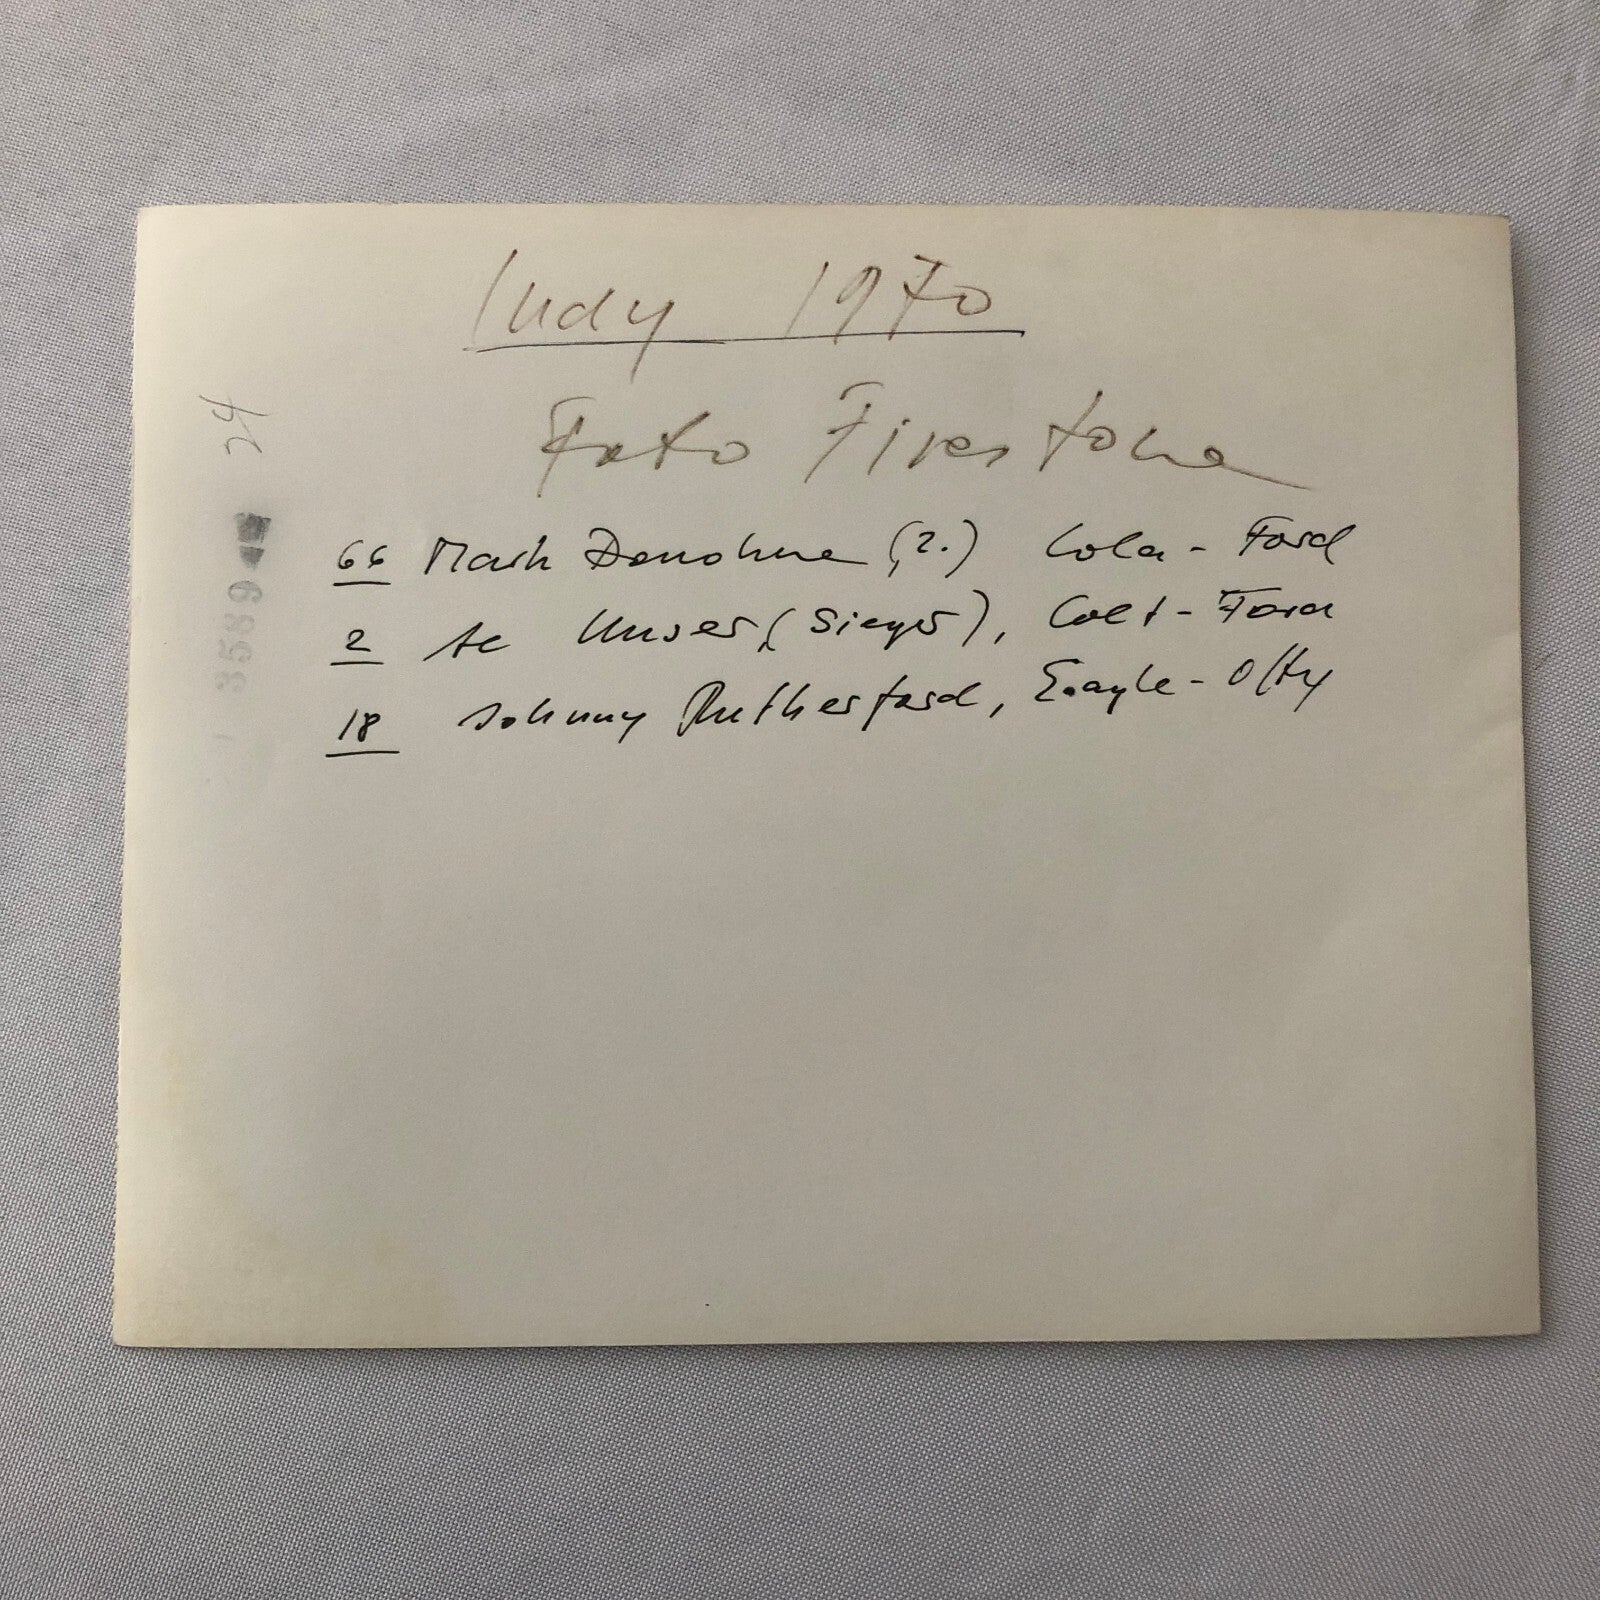 Indy 1970
Foto Firestone
66 Mark Donohue (2.) Lola - Ford
2 Al Unser (Sieger), Colt - Ford
18 Johnny Rutherford, Eagle - Offy
24